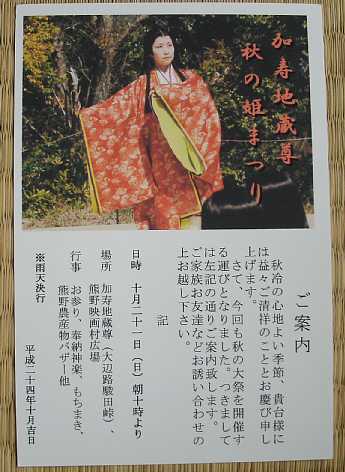 加寿地蔵尊
秋の姫まつり
ご案内
秋冷の心地よい季節、貴台様に
は益々ご清祥のこととお慶び申し
上げます。
さて、今回も秋の大祭を開催す
る運びとなりました。つきまして
は左記の通りご案内致します。
ご家族お友達などお誘い合わせの
上お越し下さい。
記
日時 十月二十一日(日)朝十時より
場所 加寿地蔵尊(大辺路駿田峠)、
熊野映画村広場
行事 お参り、奉納神楽、もちまき、
熊野農産物バザー他
※雨天決行
平成二十四年十月吉日